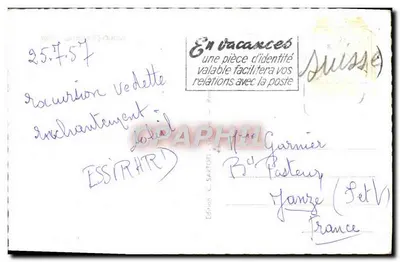 25.7.57
excursion vedette
enchantement
soleil
ESSIRARD
En vacances
une pièce d'identité
valable facilitera vos
relations avec la poste
(Suisse)
Garnier
Bd Pasteur
Janzé (I et V)
France